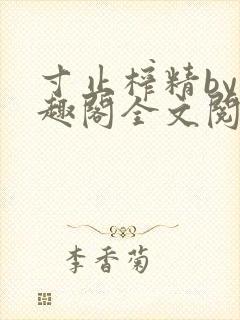 寸止榨精by
趣閣全文閱
李香菊